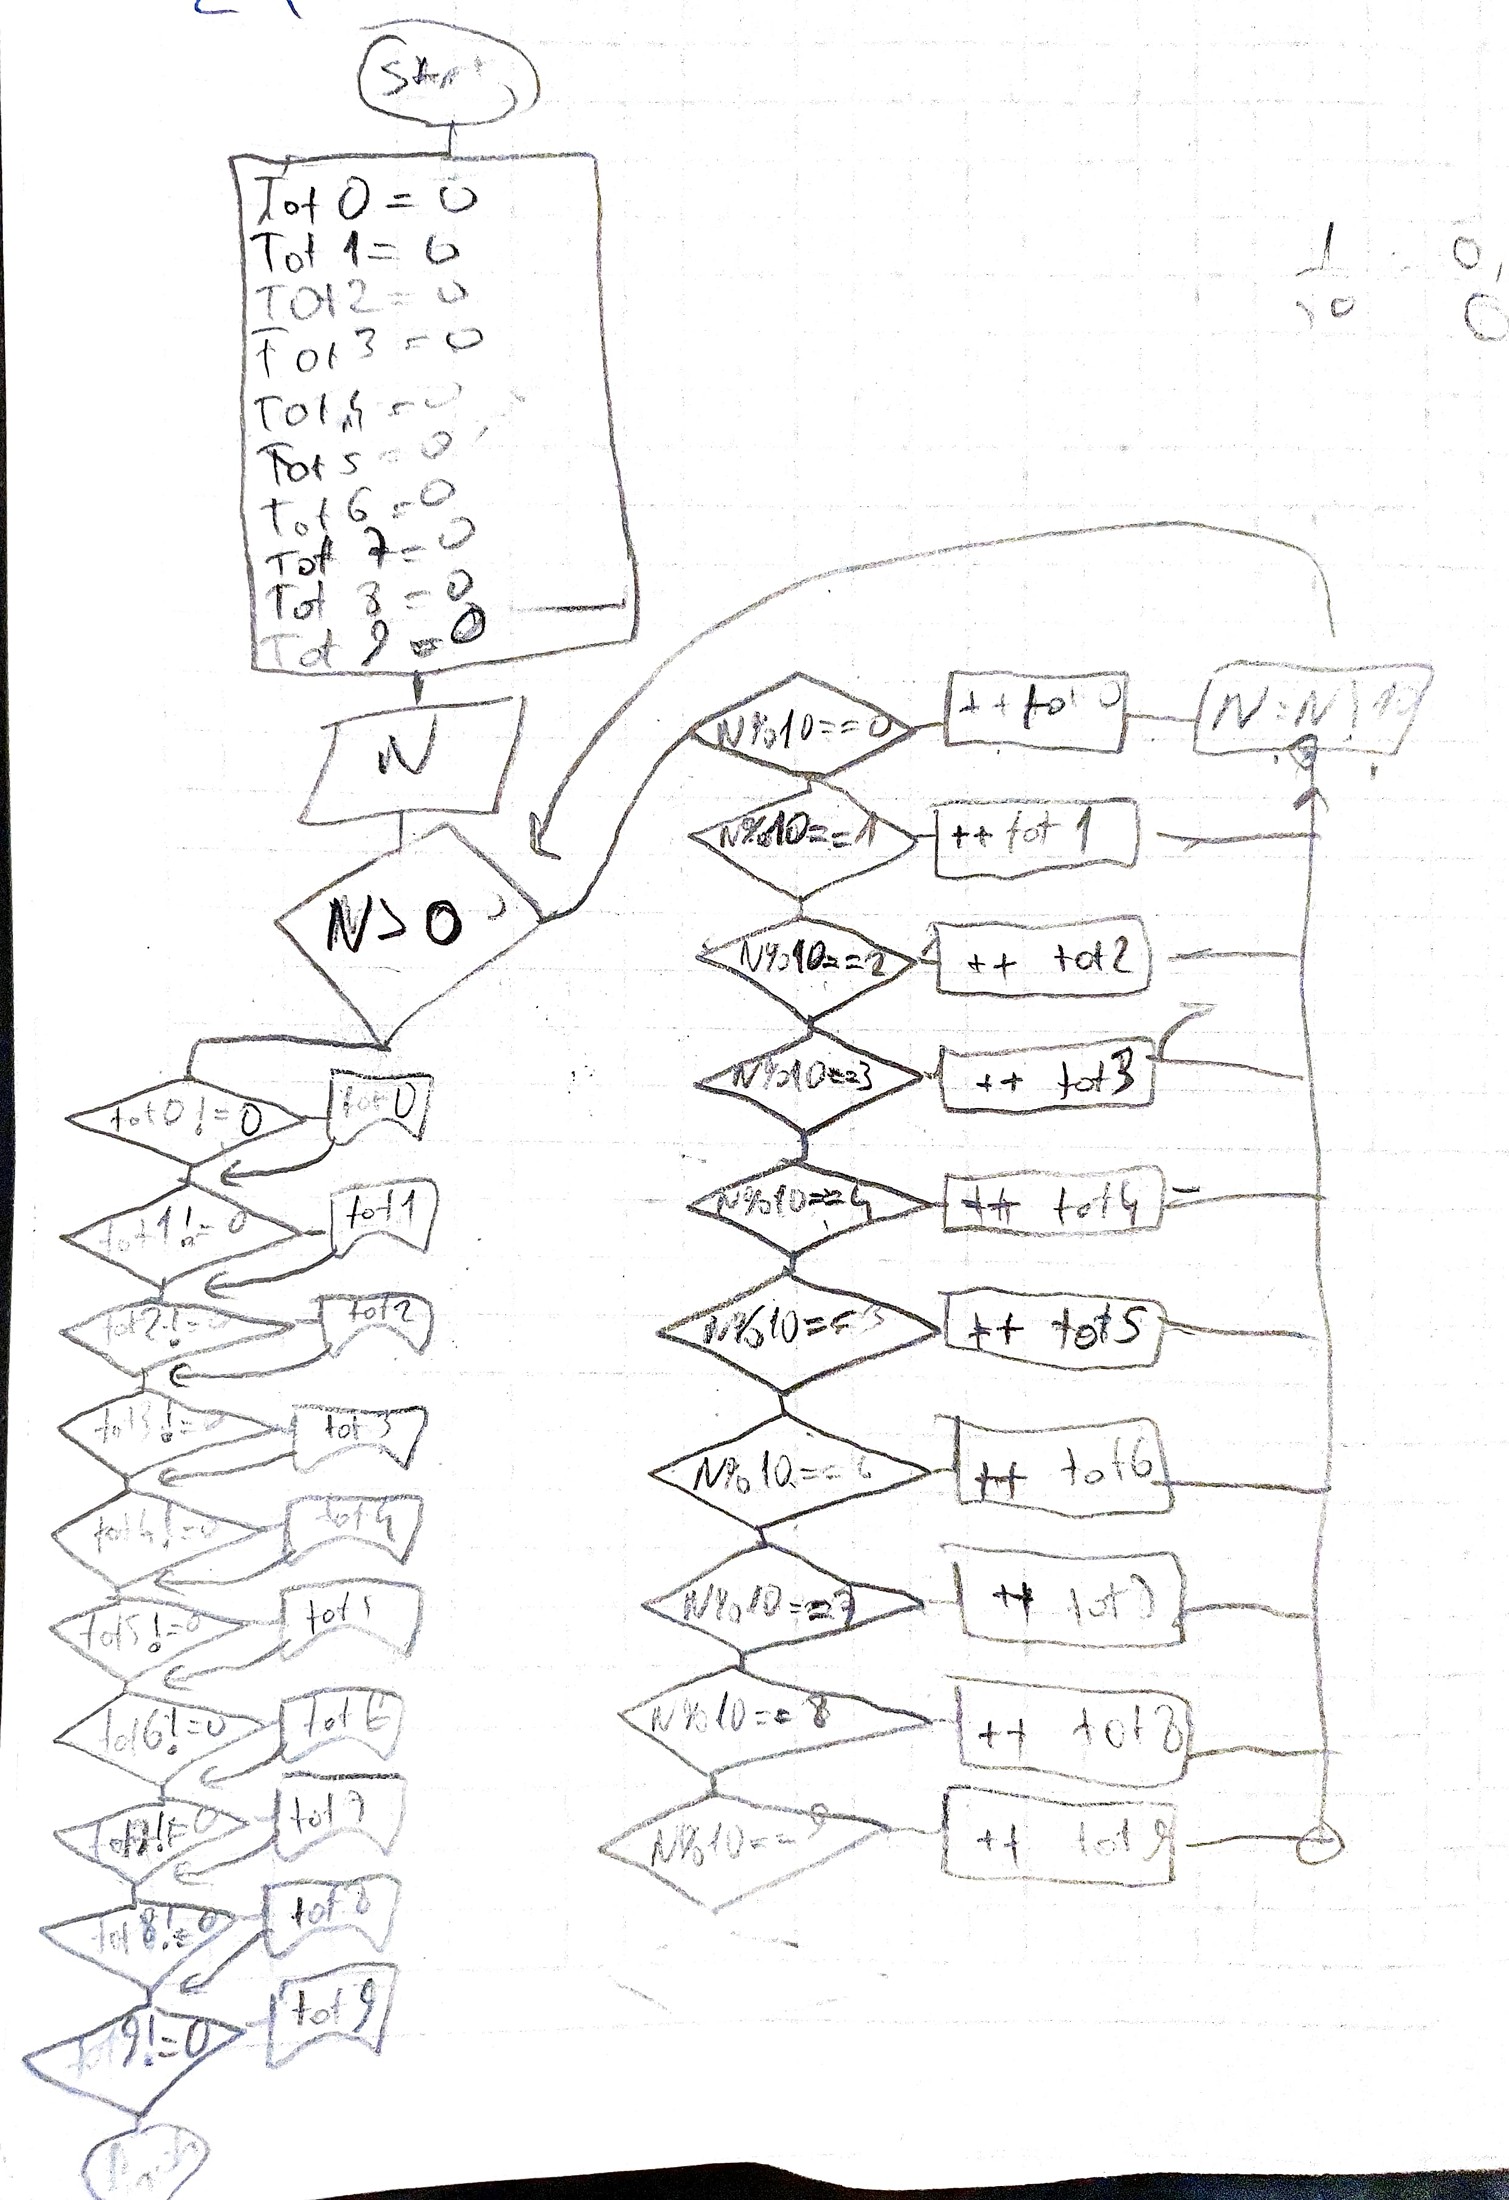 Start
Tot 0 = 0
Tot 1 = 0
Tot 2 = 0
Tot 3 = 0
Tot 4 = 0
Tot 5 = 0
Tot 6 = 0
Tot 7 = 0
Tot 8 = 0
Tot 9 = 0
N
N > 0
N%10==0
++ tot 0
1
10
0,
0
N%10==1
++ tot 1
N%10==2
++ tot2
N%10==3
++ tot3
N%10==4
++ tot4
N%10==5
++ tot5
N%10==6
++ tot6
N%10==7
++
N%10==8
++ tot8
N%10==9
++ tot9
tot0!=0
tot0
tot1!=0
tot1
tot2!=0
tot2
tot3!=0
tot3
tot4!=0
tot4
tot5!=0
tot5
tot6!=0
tot6
tot7!=0
tot7
tot8!=0
tot8
tot9!=0
tot9